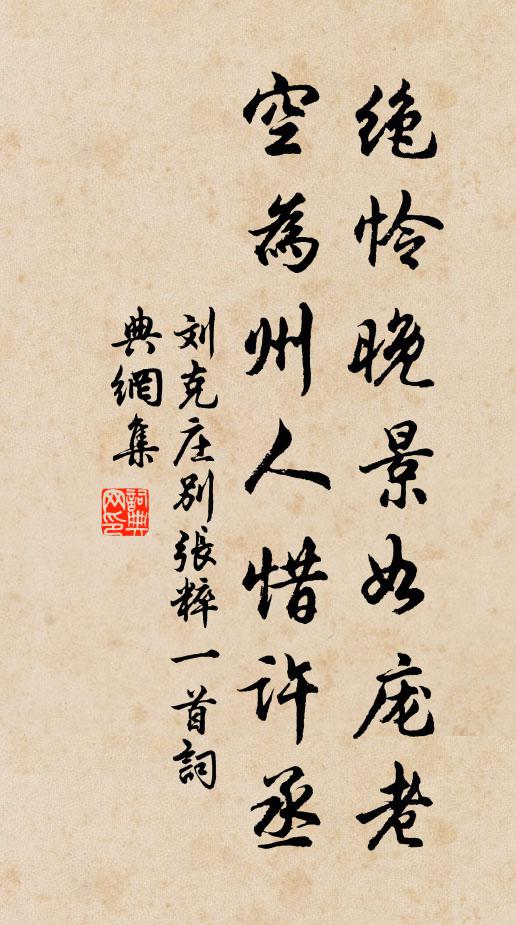 绝怜晚景如庞老
空為州人惜许丞
刘克庄别張粹一首詞
典網集
詞典网印